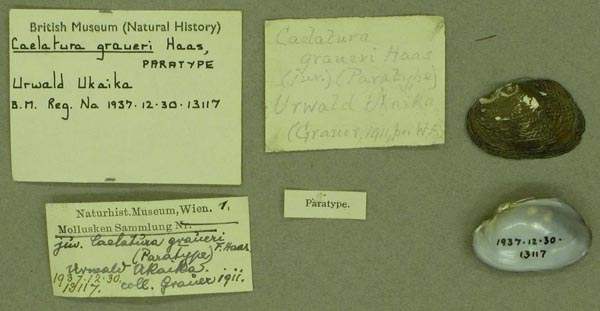 British Museum (Natural History)
Caelatura graueri Haas,
PARATYPE
Urwald Ukaika
B.M. Reg. No 1937.12.30.13117
Caelatura
graueri Haas
(juv.) (Paratype)
Urwald Ukaika
(Grauer, 1911, per W.F.
Naturhist. Museum, Wien. 7,
Mollusken Sammlung Nr.
juv. Caelatura graueri
(Paratype) F. Haas
Urwald Ukaika.
1937.12.30.
13117. coll. Grauer 1911.
Paratype.
1937.12.30.
13117